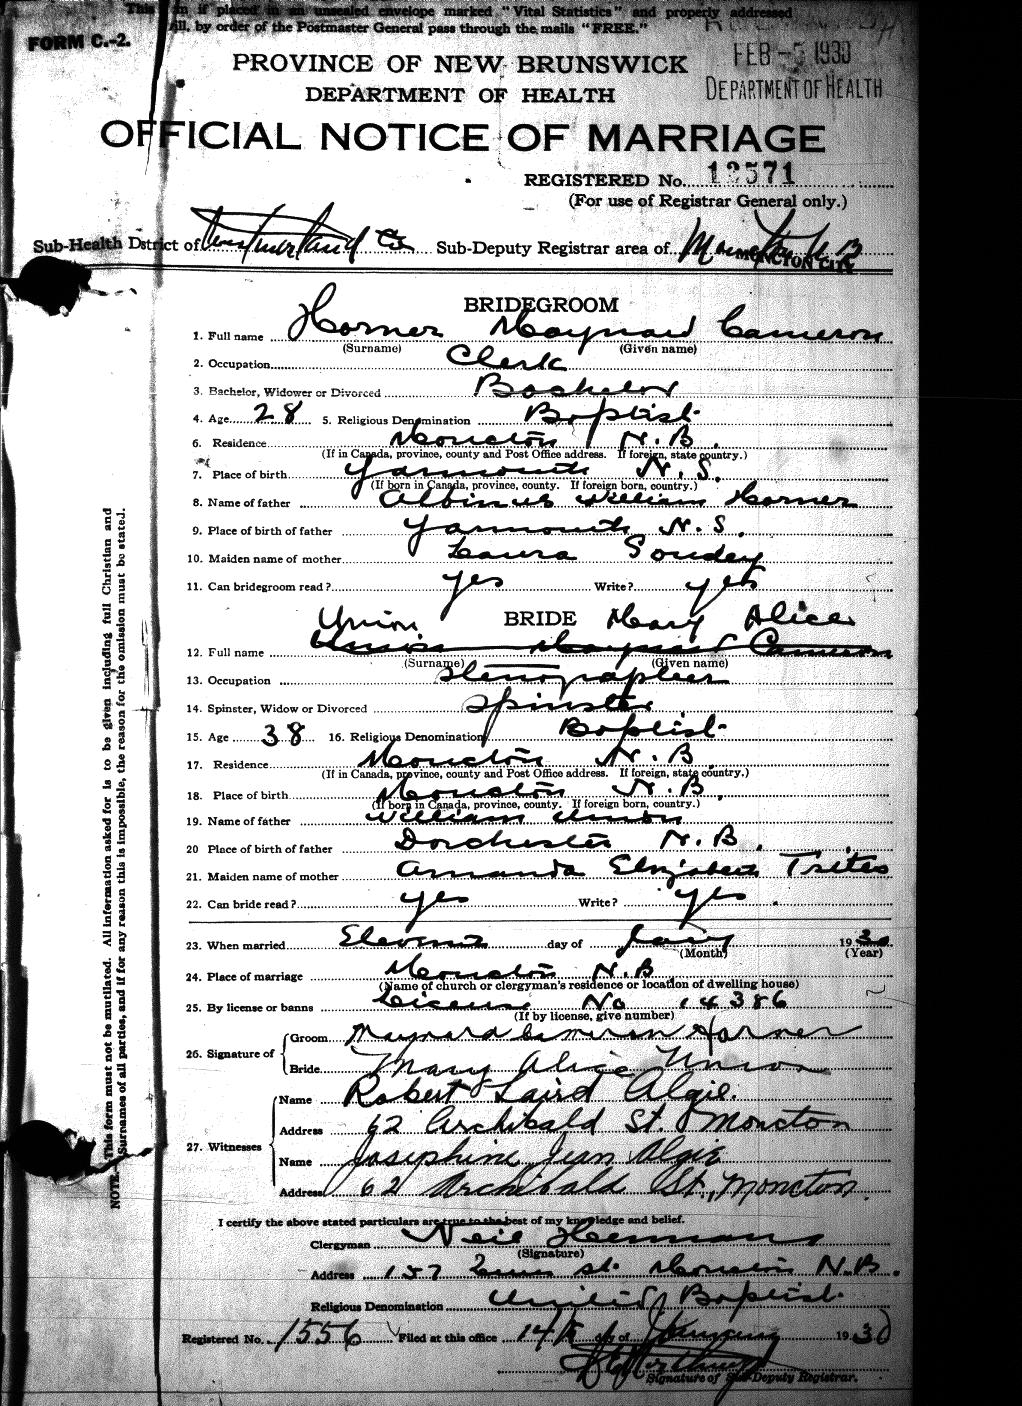 This in if placed in an unsealed envelope marked "Vital Statistics" and properly addressed
ill, by order of the Postmaster General pass through the mails "FREE."
FORM C.-2.
FEB -5 1930
DEPARTMENT OF HEALTH
PROVINCE OF NEW BRUNSWICK
DEPARTMENT OF HEALTH
OFFICIAL NOTICE OF MARRIAGE
REGISTERED No. 12571
(For use of Registrar General only.)
Sub-Health District of Westmorland Co Sub-Deputy Registrar area of Moncton N.B
MONCTON CITY
BRIDEGROOM
1. Full name Horner Maynard Cameron
(Surname) (Given name)
2. Occupation Clerk
3. Bachelor, Widower or Divorced Bachelor
4. Age 28 5. Religious Denomination Baptist
6. Residence Moncton N.B.
(If in Canada, province, county and Post Office address. If foreign, state country.)
7. Place of birth Yarmouth N.S.
(If born in Canada, province, county. If foreign born, country.)
8. Name of father Albinus William Horner
9. Place of birth of father Yarmouth N.S.
10. Maiden name of mother Laura Goudey
11. Can bridegroom read? yes Write? yes
BRIDE
Union Mary Alice
12. Full name Union Maynard Cameron
(Surname) (Given name)
13. Occupation Stenographer
14. Spinster, Widow or Divorced Spinster
15. Age 38 16. Religious Denomination Baptist
17. Residence Moncton N.B.
(If in Canada, province, county and Post Office address. If foreign, state country.)
18. Place of birth Moncton N.B.
(If born in Canada, province, county. If foreign born, country.)
19. Name of father William Union
20 Place of birth of father Dorchester N.B.
21. Maiden name of mother Amanda Elizabeth Trites
22. Can bride read? yes Write? yes
23. When married Eleventh day of Jany 1930
(Month) (Year)
24. Place of marriage Moncton N.B
(Name of church or clergyman's residence or location of dwelling house)
25. By license or banns License No 14386
(If by license, give number)
26. Signature of
Groom Maynard Cameron Horner
Bride Mary Alice Union
27. Witnesses
Name Robert Laird Algie.
Address 62 Archibald St. Moncton
Name Josephine Jean Algie
Address 62 Archibald St., Moncton.
I certify the above stated particulars are true to the best of my knowledge and belief.
Clergyman Neil Herman
(Signature)
Address 157 St. Moncton N.B.
Religious Denomination United Baptist
Registered No. 1556 Filed at this office 14th day of January 1930
Signature of Sub-Deputy Registrar.
NOTE.—This form must not be mutilated. All information asked for is to be given including full Christian and
Surnames of all parties, and if for any reason this is impossible, the reason for the omission must be stated.